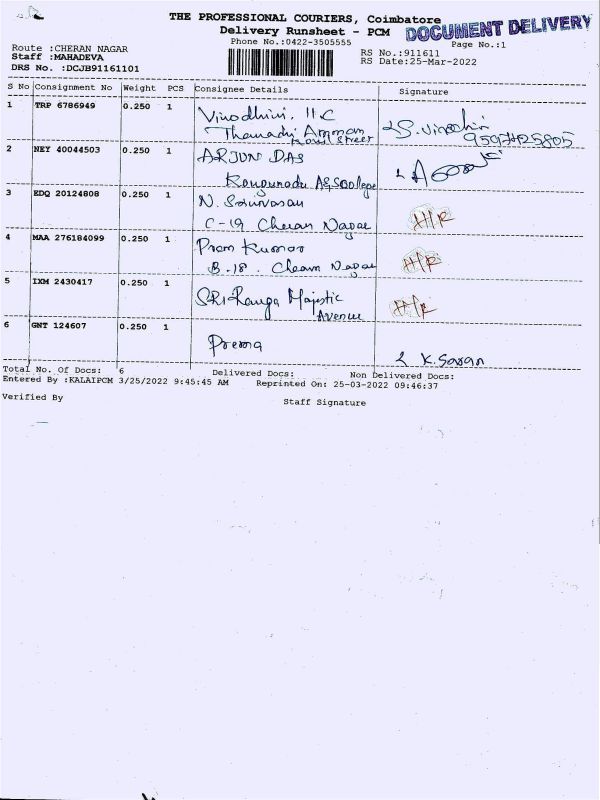 THE PROFESSIONAL COURIERS, Coimbatore
DOCUMENT DELIVERY
Delivery Runsheet - PCM
Phone No.:0422-3505555
Page No.:1
Route :CHERAN NAGAR
RS No.:911611
Staff :MAHADEVA
RS Date:25-Mar-2022
DRS No. :DCJB91161101
S No Consignment No Weight PCS Consignee Details Signature
1 TRP 6786949 0.250 1 Vinodhini, 11C
Ammam
Street
2 NEY 40044503 0.250 1 ARJUN DAS
3 EDQ 20124808 0.250 1 N. Srinivasan H/R
C-19 Cheran Nagar
4 MAA 276184099 0.250 1 Prem Kumar H/R
B-18. Cheran Nagar
5 IXM 2430417 0.250 1 SRI Ranga Majestic H/R
Avenue
6 GNT 124607 0.250 1 Prema
K. Saran
Total No. Of Docs: 6 Delivered Docs: Non Delivered Docs:
Entered By :KALAIPCM 3/25/2022 9:45:45 AM Reprinted On: 25-03-2022 09:46:37
Verified By
Staff Signature